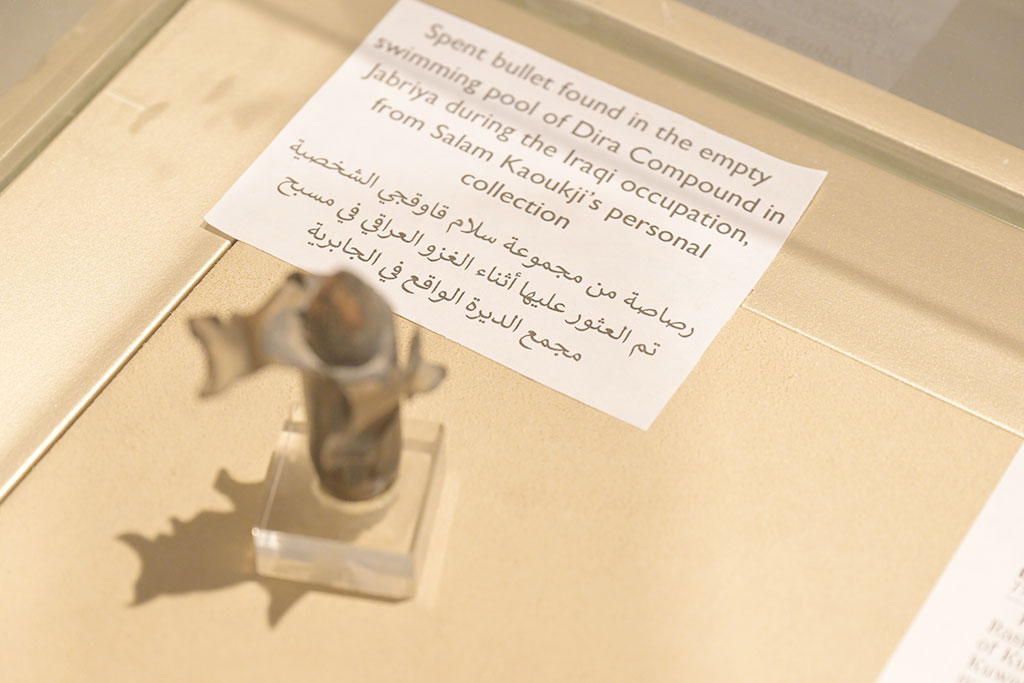 Spent bullet found in the empty
swimming pool of Dira Compound in
Jabriya during the Iraqi occupation,
from Salam Kaoukji's personal
collection
رصاصة من مجموعة سلام قاوقجي الشخصية
تم العثور عليها أثناء الغزو العراقي في مسبح
مجمع الديرة الواقع في الجابرية
of Ku
Kuwa